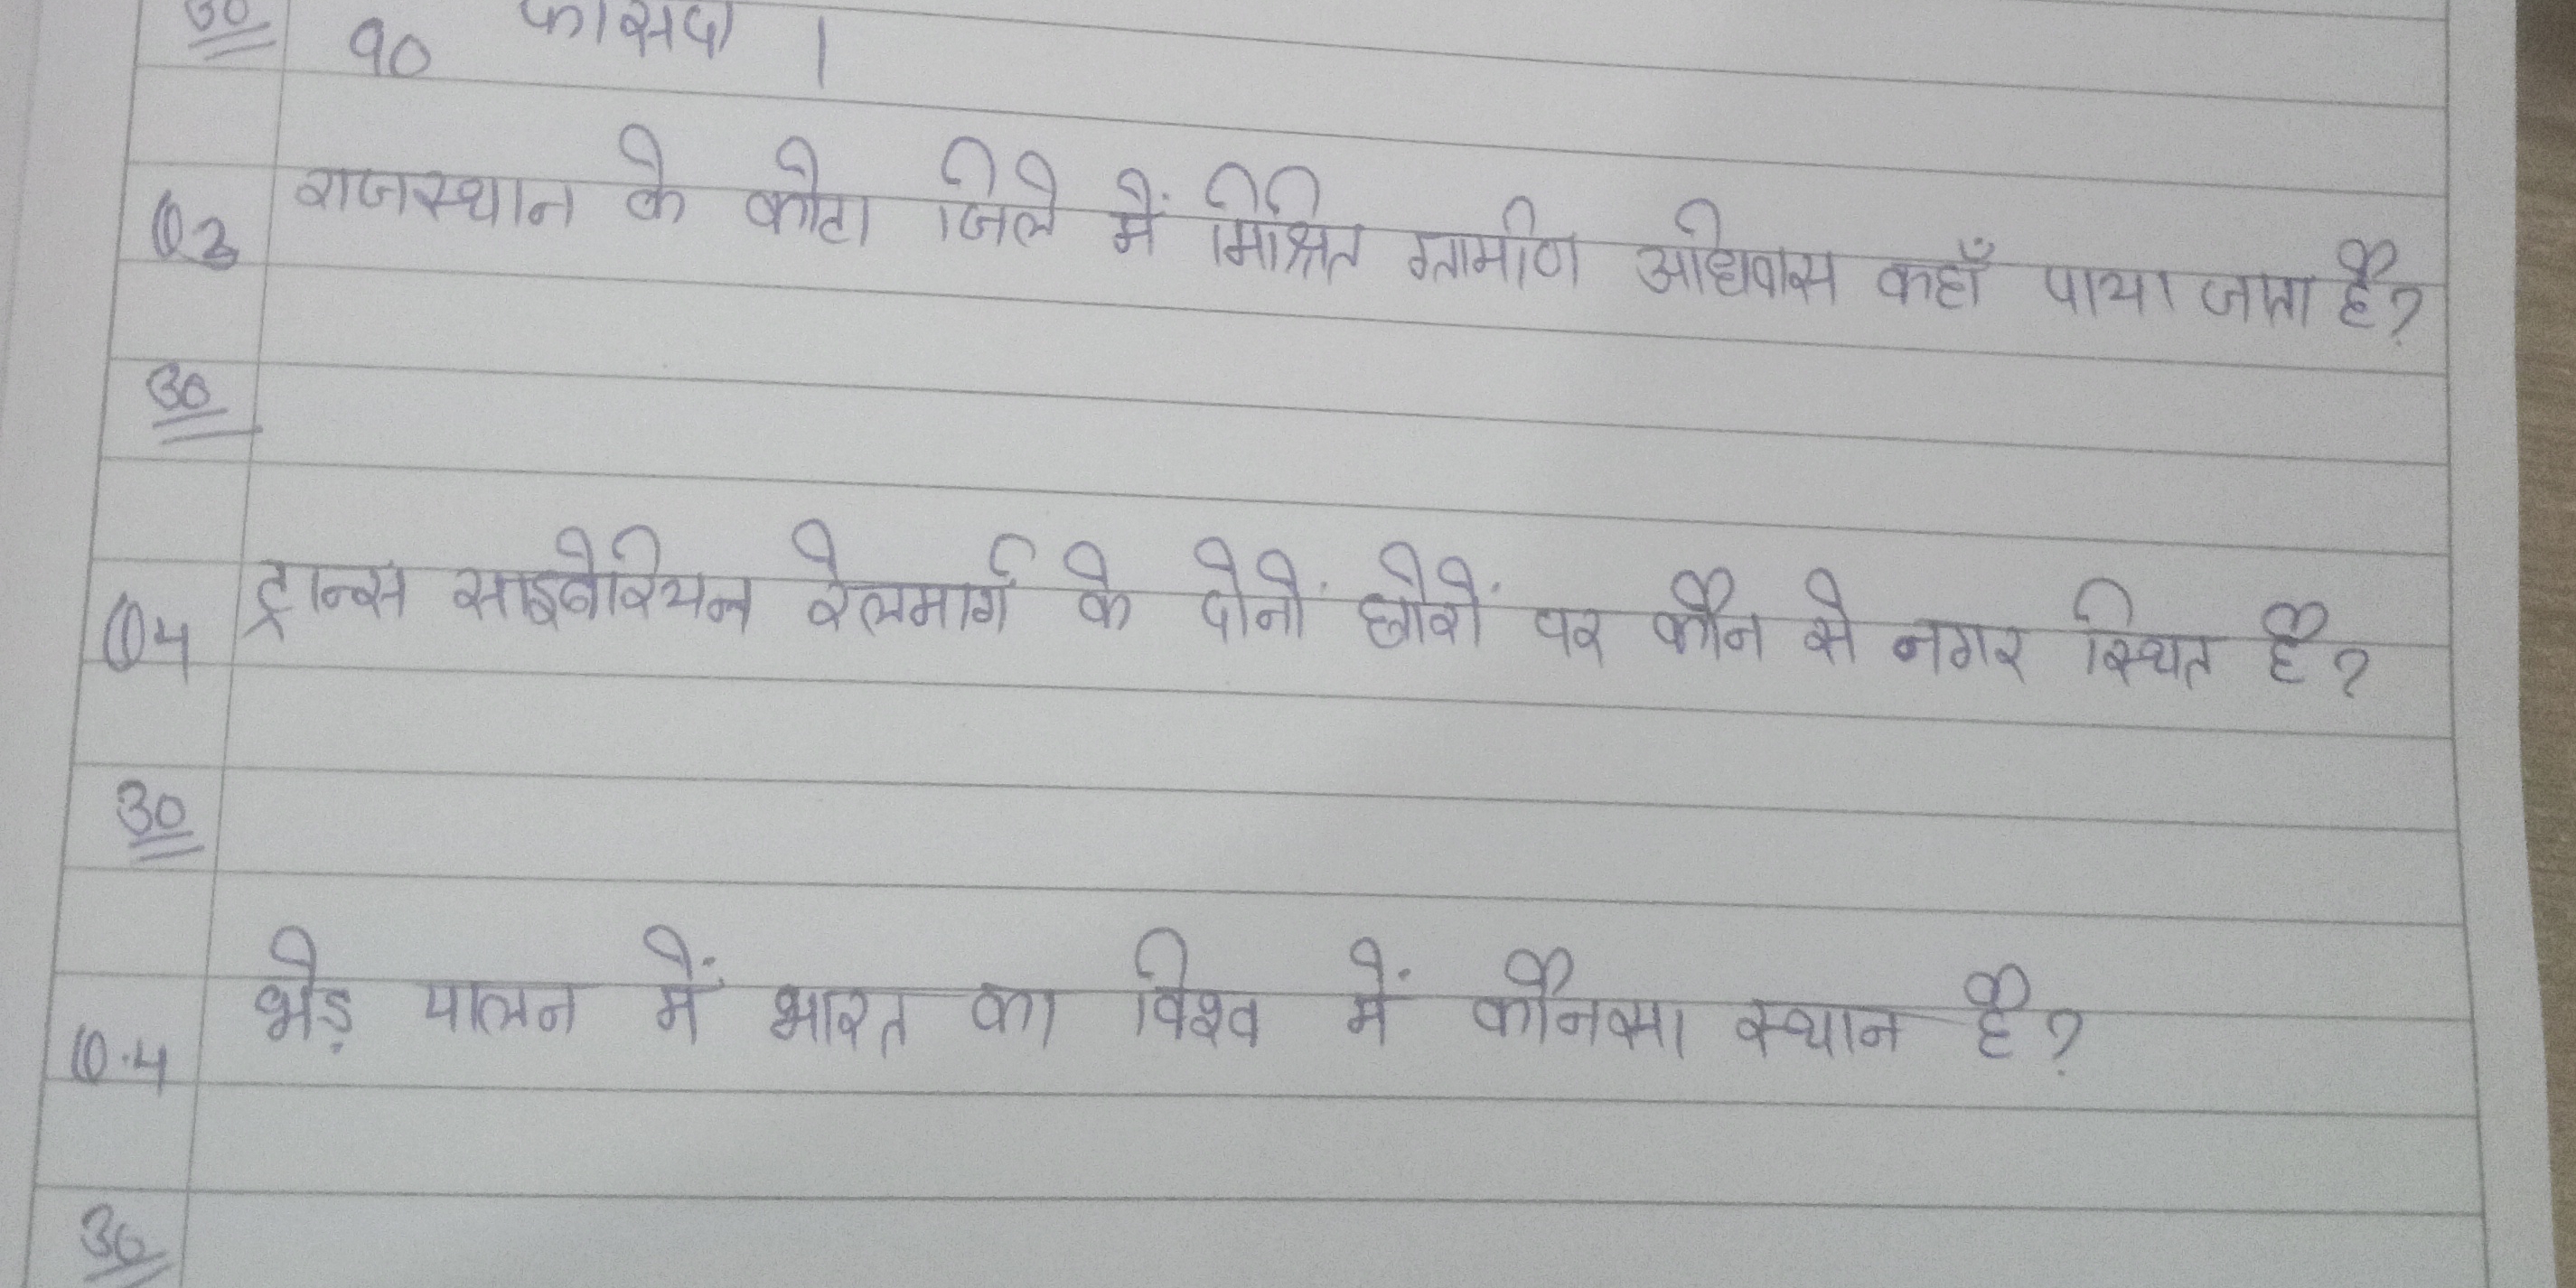 उ० 90 फीसदी ।
Q3 राजस्थान के कोटा जिले में मिश्रित ग्रामीण अधिवास कहाँ पाया जाता है?
उ०
Q4 ट्रान्स साइबेरियन रेलमार्ग के दोनों छोरों पर कौन से नगर स्थित है?
उ०
Q.4 भेड़ पालन में भारत का विश्व में कौनसा स्थान है?
उ०